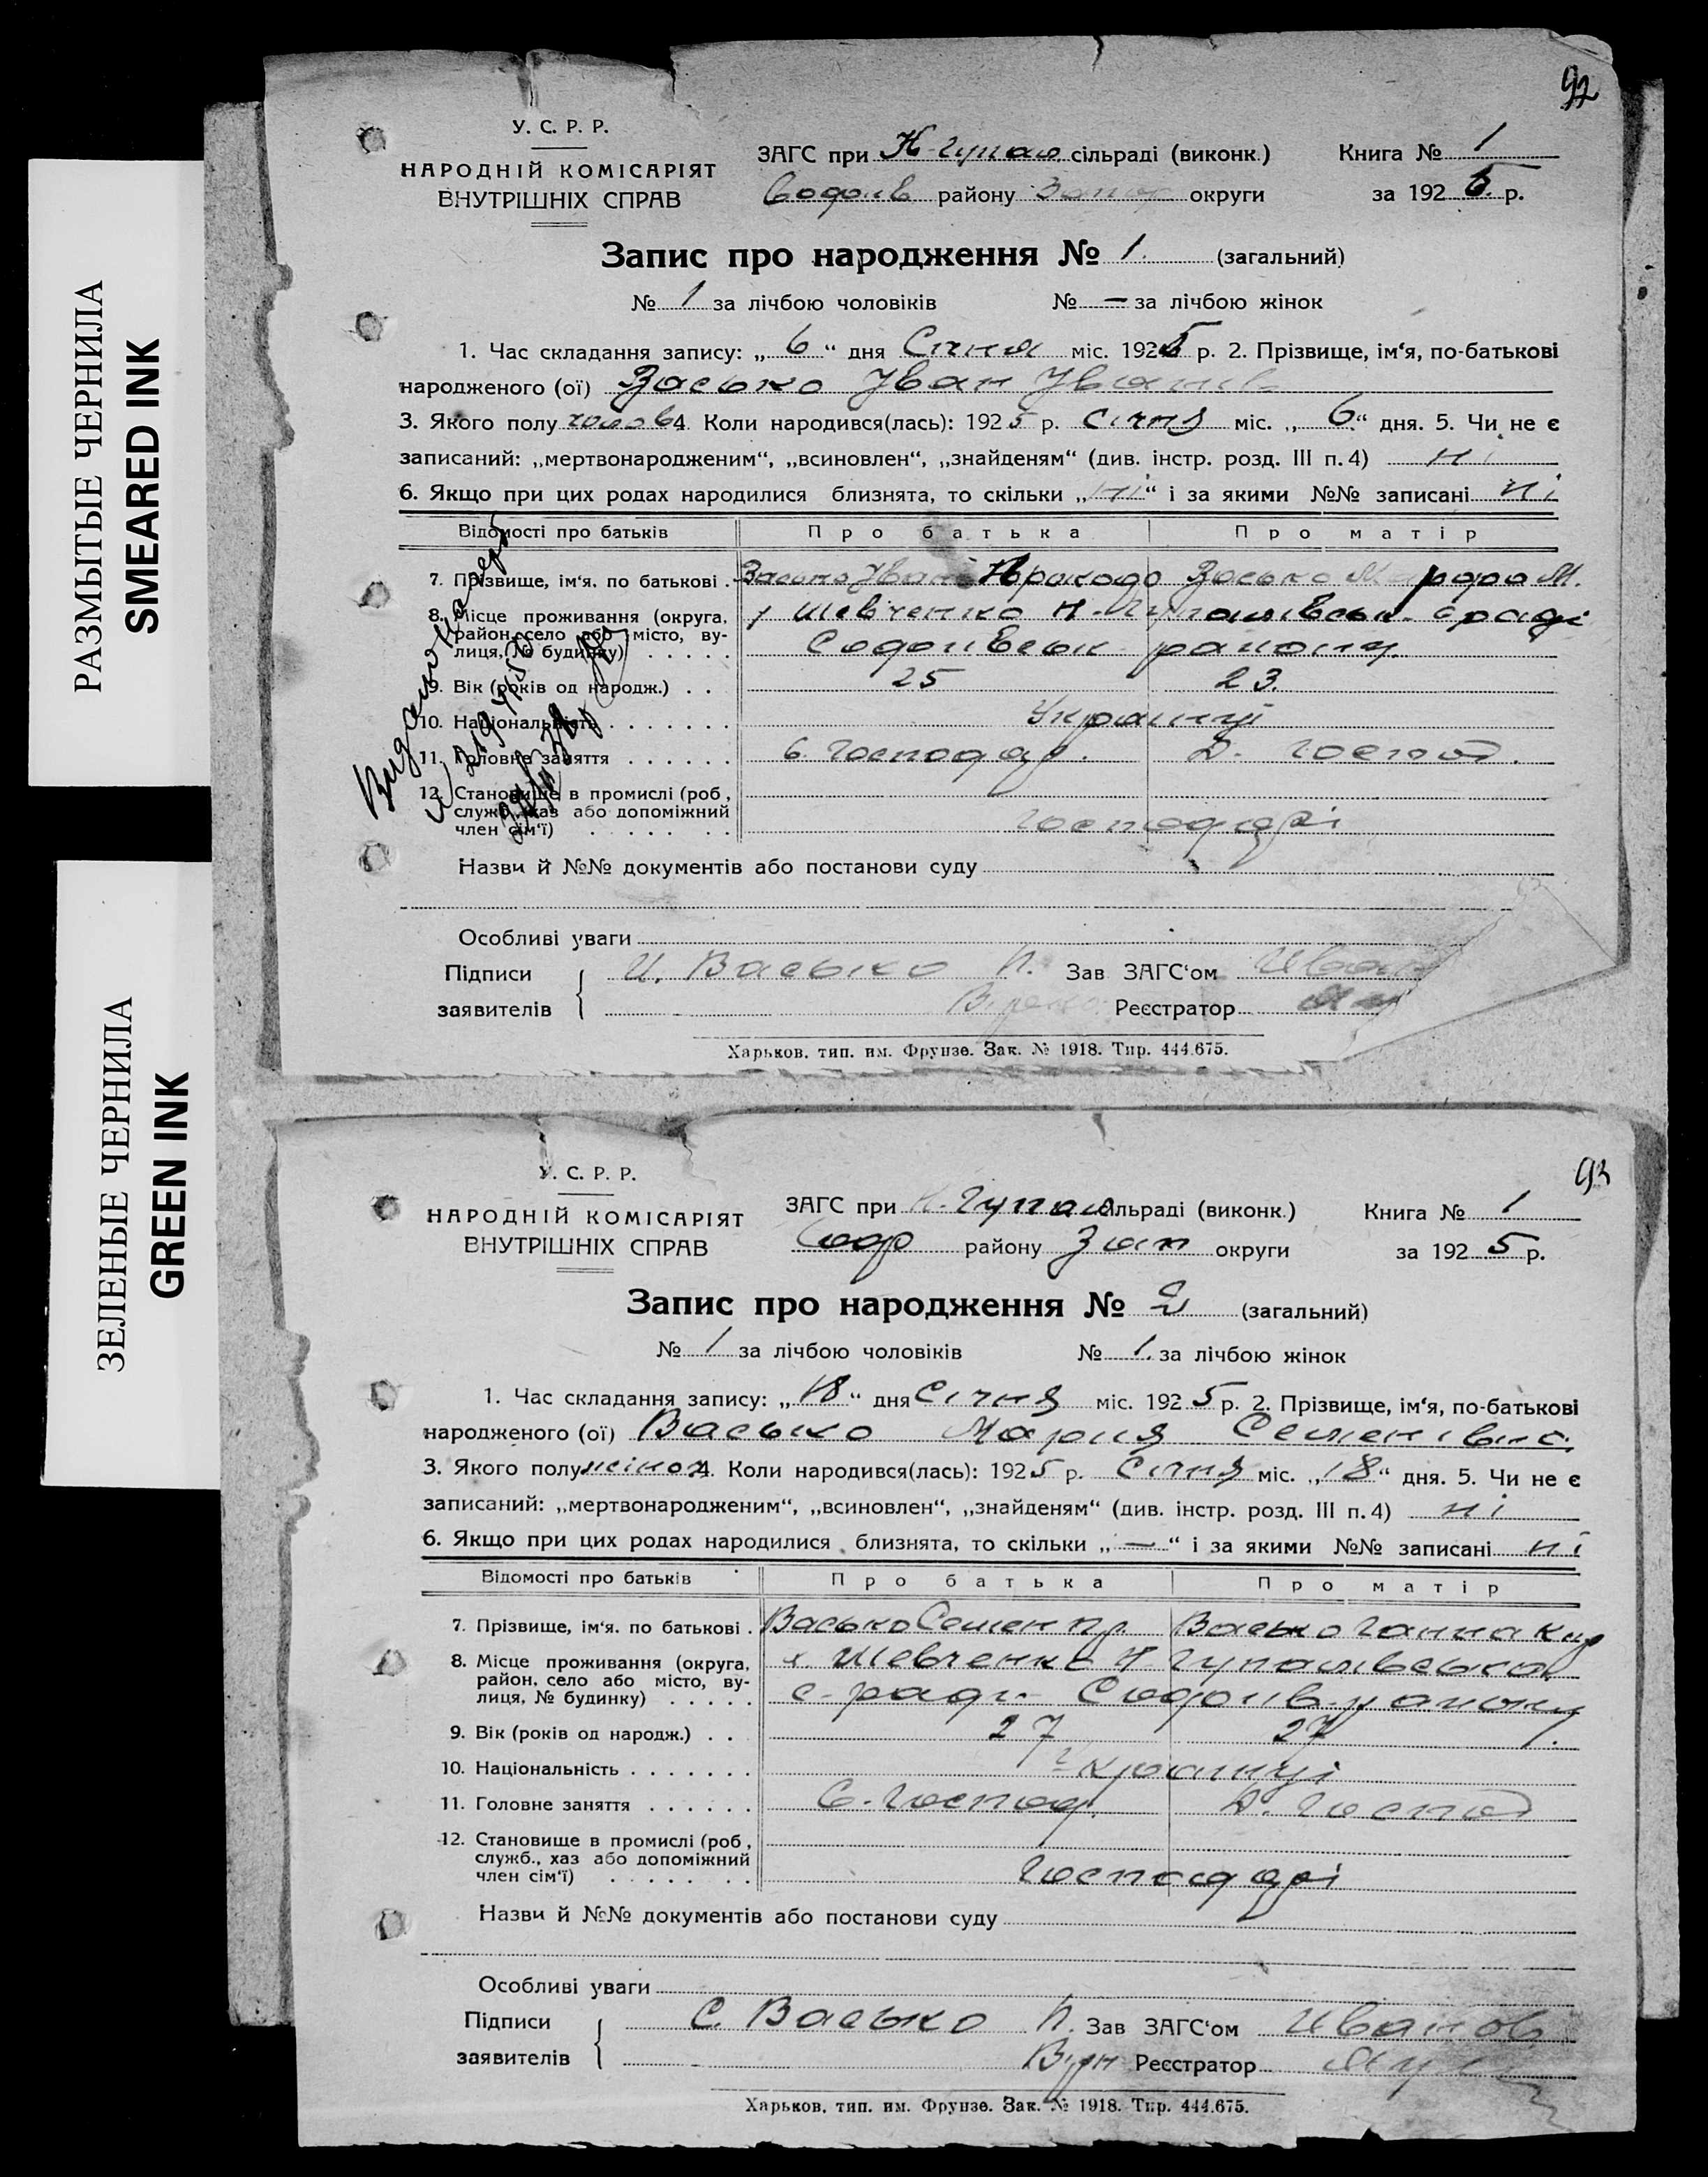 РАЗМЫТЫЕ ЧЕРНИЛА
SMEARED INK
ЗЕЛЕНЫЕ ЧЕРНИЛА
GREEN INK
92
У. С. Р. Р.
НАРОДНІЙ КОМІСАРІЯТ
ВНУТРІШНІХ СПРАВ
ЗАГС при Н-Гупал сільраді (виконк.)
Софиїв району Запор округи
Книга № 1
за 1925 р.
Запис про народження № 1. (загальний)
№ 1 за лічбою чоловіків № — за лічбою жінок
1. Час складання запису: „ 6 “ дня Січня міс. 1925 р. 2. Прізвище, ім‘я, по-батькові
народженого (ої) Васько Іван Іванів
3. Якого полу чолов 4. Коли народився(лась): 1925 р. Січня міс. „ 6 “ дня. 5. Чи не є
записаний: „мертвонародженим“, „всиновлен“, „знайденям“ (див. інстр. розд. III п. 4) ні
6. Якщо при цих родах народилися близнята, то скільки „ ні “ і за якими №№ записані ні
Відомості про батьків Про батька Про матір
7. Прізвище, ім‘я. по батькові . Васько Іван Васько М.
8. Місце проживання (округа, х Шевченко Н-Гупалівськ. сради
район, село або місто, ву-
лиця, № будинку) Софиївськ району
9. Вік (років од народж.) 25 23.
10. Національність Українці
11. Головне заняття С. Господар. Д. Господ.
12. Становище в промислі (роб,
служб., хаз або допоміжний
член сім‘ї) Господарі
Видано
Назви й №№ документів або постанови суду
Особливі уваги
Підписи И. Васько П. Зав ЗАГС‘ом Иван
заявителів Реєстратор
Харьков, тип. им. Фрунзе. Зак. № 1918. Тир. 444.675.
93
У. С. Р. Р.
НАРОДНІЙ КОМІСАРІЯТ
ВНУТРІШНІХ СПРАВ
ЗАГС при Н-Гупал сільраді (виконк.)
Соф району Зап округи
Книга № 1
за 1925 р.
Запис про народження № 2 (загальний)
№ 1 за лічбою чоловіків № 1. за лічбою жінок
1. Час складання запису: „ 18 “ дня Січня міс. 1925 р. 2. Прізвище, ім‘я, по-батькові
народженого (ої) Васько Мария Семенівна
3. Якого полу жіноч 4. Коли народився(лась): 1925 р. Січня міс. „ 18 “ дня. 5. Чи не є
записаний: „мертвонародженим“, „всиновлен“, „знайденям“ (див. інстр. розд. III п. 4) ні
6. Якщо при цих родах народилися близнята, то скільки „ — “ і за якими №№ записані ні
Відомості про батьків Про батька Про матір
7. Прізвище, ім‘я. по батькові . Васько Семен Пр. Васько Ганна Кир
8. Місце проживання (округа, х. Шевченко Н Гупалівської
район, село або місто, ву-
лиця, № будинку) с-ради Софиїв-району
9. Вік (років од народж.) 27 27
10. Національність Українці
11. Головне заняття С. Господ. Д. Господ
12. Становище в промислі (роб,
служб., хаз або допоміжний
член сім‘ї) Господарі
Назви й №№ документів або постанови суду
Особливі уваги
Підписи С. Васько П. Зав ЗАГС‘ом Иванов
заявителів Реєстратор
Харьков, тип. им. Фрунзе. Зак. № 1918. Тир. 444.675.